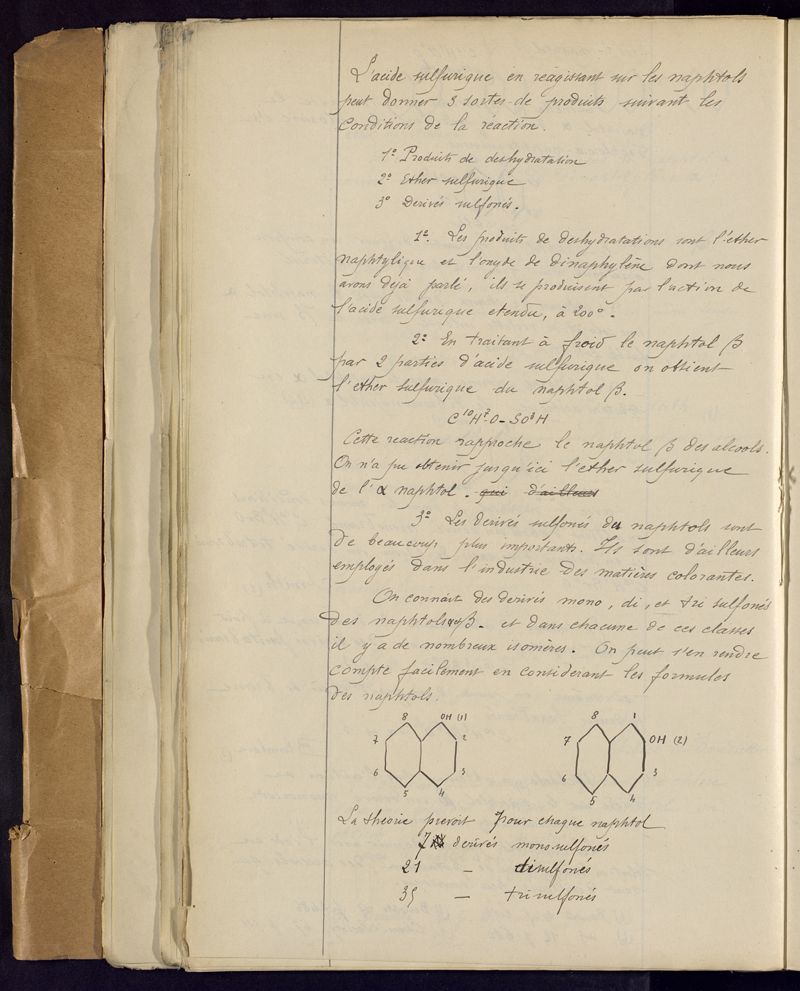 L'acide sulfurique en réagissant sur les naphtols
peut donner 3 sortes de produits suivant les
conditions de la réaction.
1º Produits de deshydratation
2º Ether sulfurique
3º Derivés sulfonés.
1º. Les produits de deshydratations sont l'ether
naphtylique et l'oxyde de dinaphylène dont nous
avons déjà parlé, ils se produisent par l'action de
l'acide sulfurique etendu, à 200º.
2º En traitant à froid le naphtol β
par 2 parties d'acide sulfurique on obtient
l'ether sulfurique du naphtol β.
C¹⁰H⁷-O-SO³H
Cette reaction rapproche le naphtol β des alcools.
On n'a pu obtenir jusqu'ici l'ether sulfurique
de l'α naphtol. qui d'ailleurs
3º Les derivés sulfonés du naphtols sont
de beaucoup plus importants. Ils sont d'ailleurs
employés dans l'industrie des matières colorantes.
On connait des derivés mono, di, et tri sulfonés
des naphtols α et β. et dans chacune de ces classes
il y a de nombreux isomères. On peut s'en rendre
compte facilement en considerant les formules
des naphtols.
8 OH (1)
7 2
6 3
5 4
8 1
7 OH (2)
6 3
5 4
La théorie prévoit pour chaque naphtol
7 derivés monosulfonés
21 — disulfonés
35 — trisulfonés